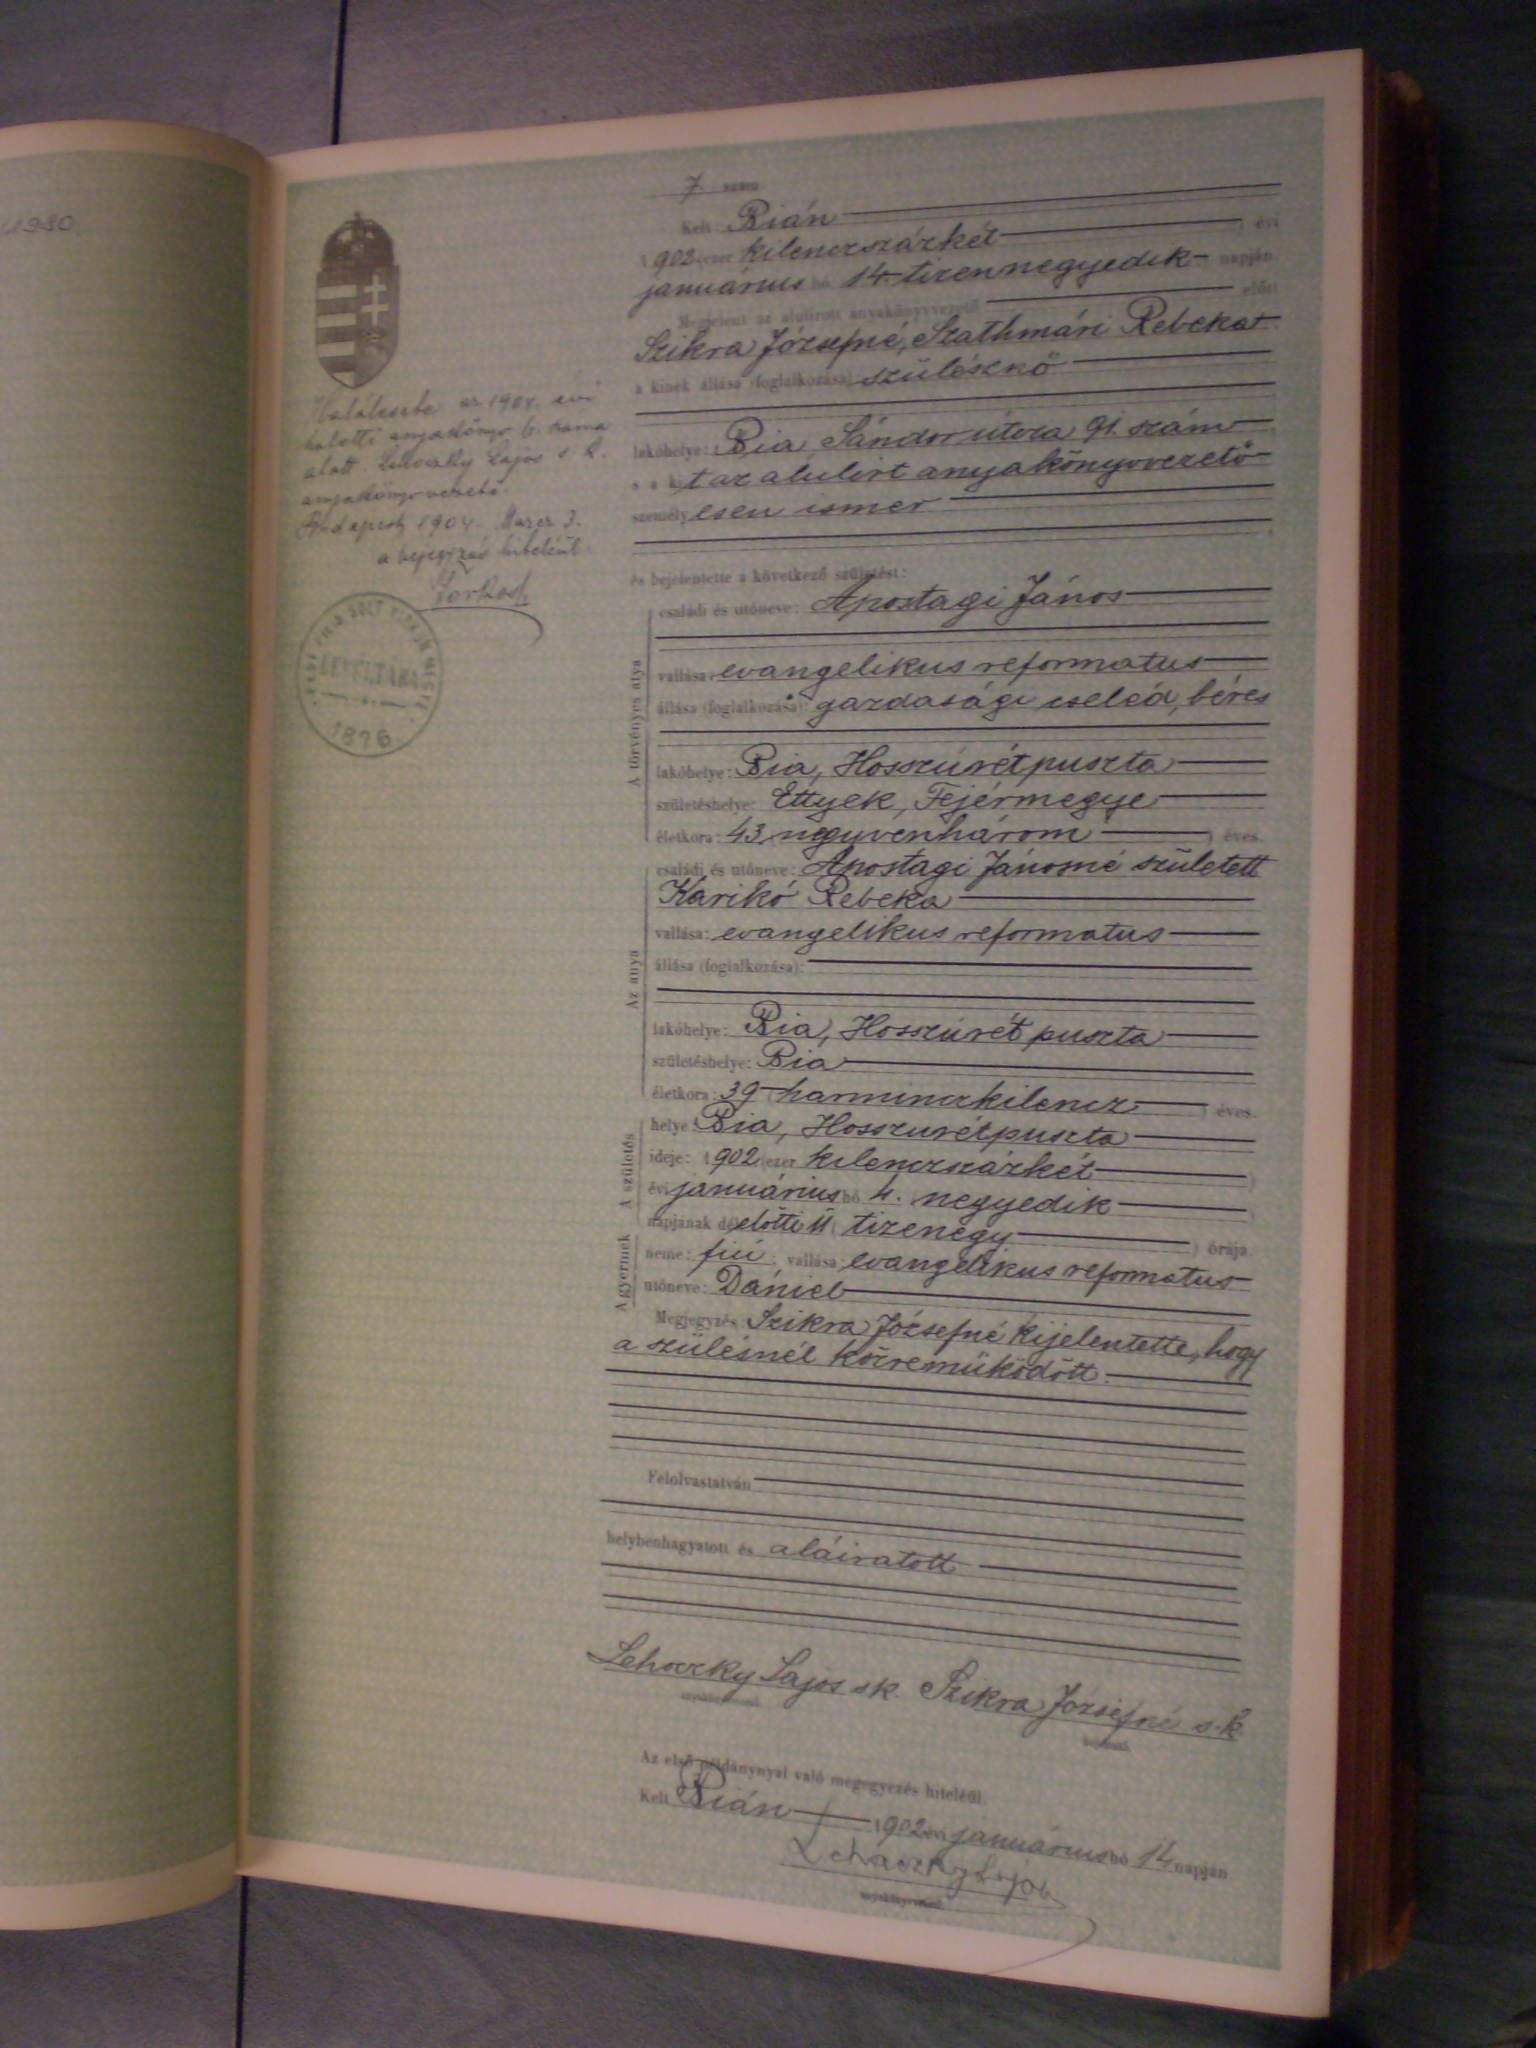 1930.
7 szám
Kelt: Bián
1902 (ezer kilenczszázkét) évi
januárius hó 14. (tizennegyedik) napján.
Megjelent az alulirott anyakönyvvezető előtt
Szikra Józsefné, Szathmári Rebeka
a kinek állása (foglalkozása): szülésznő
lakóhelye: Bia, Sándor útcza 91. szám
s a kit az alulírt anyakönyvvezető
személyesen ismer
és bejelentette a következő születést:
A törvényes atya
családi és utóneve: Apostagi János
vallása: evangelikus reformatus
állása (foglalkozása): gazdasági cseléd, béres
lakóhelye: Bia, Hosszúrétpuszta
születéshelye: Ettyek, Fejérmegye
életkora: 43 (negyvenhárom) éves.
Az anya
családi és utóneve: Apostagi Jánosné született
Karikó Rebeka
vallása: evangelikus reformatus
állása (foglalkozása):
lakóhelye: Bia, Hosszúrét puszta
születéshelye: Bia
életkora: 39 (harminczkilencz) éves.
A születés
helye: Bia, Hosszurétpuszta
ideje: 1902 (ezer kilenczszázkét)
évi januárius hó 4. (negyedik)
napjának délelőtti 11 (tizenegy) órája.
A gyermek
neme: fiú; vallása: evangelikus reformatus
utóneve: Dániel
Megjegyzés: Szikra Józsefné kijelentette, hogy
a szülésnél közreműködött.
Felolvastatván
helybenhagyatott és aláiratott
Lehoczky Lajos sk. Szikra Józsefné s.k.
anyakönyvvezető. bejelentő.
Az első példánynyal való megegyezés hiteléül.
Kelt Bián 1902 évi januárius hó 14 napján.
Lehoczky Lajos
anyakönyvvezető.
Halálesete az 1904. évi
halotti anyakönyv 6. száma
alatt. Lehoczky Lajos s. k.
anyakönyvvezető.
Budapest, 1904. Marcz 3.
a bejegyzés hiteléül
PEST PILIS SOLT KISKUN MEGYE
LEVÉLTÁRA
1876